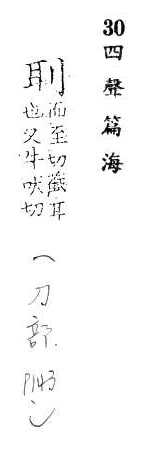 30四聲篇海
刵 而至切截耳
也又牛吠切
(刀部.P143)